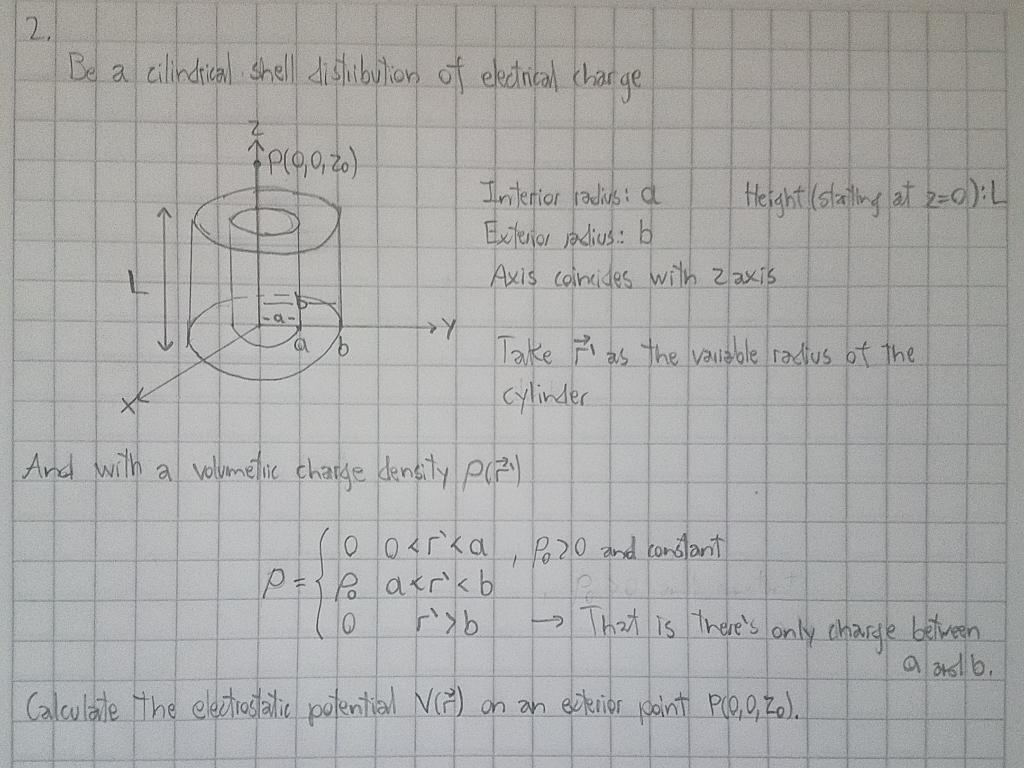 2.
Be a cilindrical shell distribution of electrical charge
Z
P(0,0,z₀)
Interior radius: a Height (starting at z=0): L
Exterior radius: b
Axis coincides with z axis
L
b
-a-
a b
Y
X
Take r⃗' as the variable radius of the
cylinder
And with a volumetric charge density ρ(r⃗')
ρ = { 0 0<r'<a , ρ₀>0 and constant
ρ₀ a<r'<b
0 r'>b → That is there's only charge between
a and b.
Calculate the electrostatic potential V(r⃗) on an exterior point P(0,0,z₀).